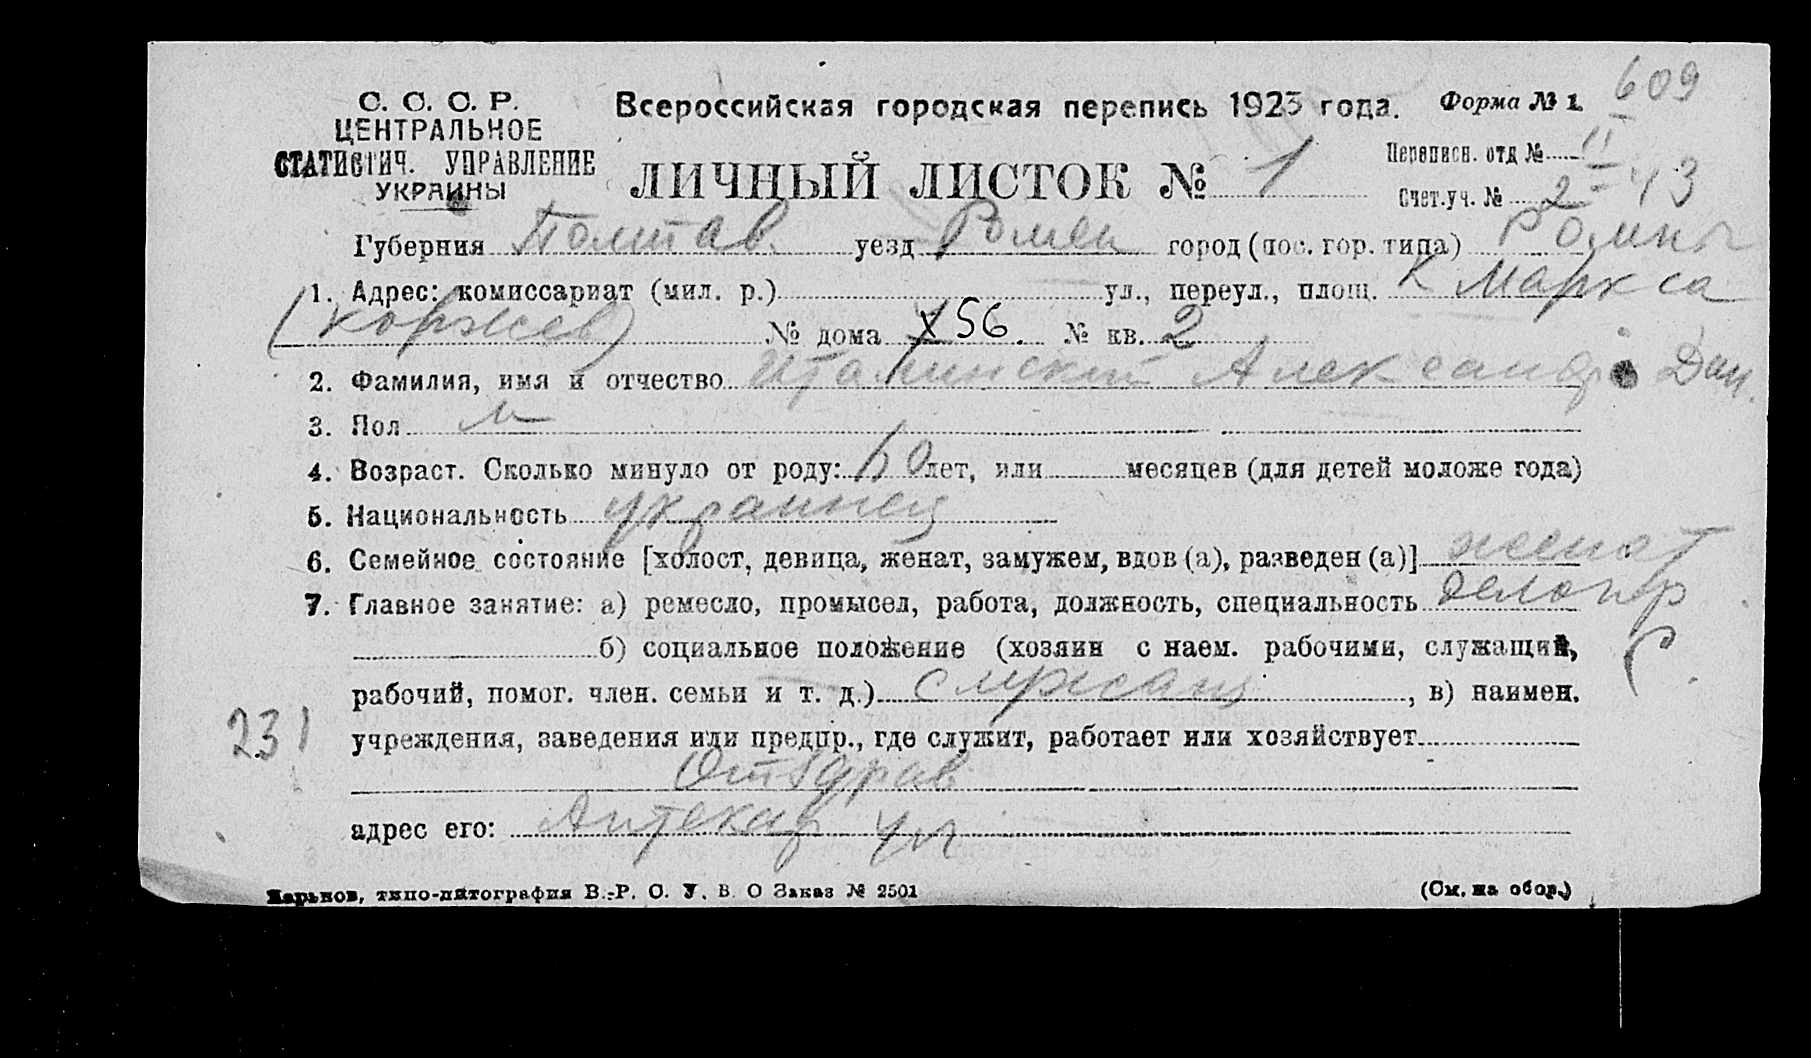 609
С. С. С. Р.
ЦЕНТРАЛЬНОЕ
СТАТИСТИЧ. УПРАВЛЕНИЕ
УКРАИНЫ
Всероссийская городская перепись 1923 года. Форма № 1.
ЛИЧНЫЙ ЛИСТОК № 1
Переписн. отд № II
Счет.уч. № 2 - 43
Губерния Полтав. уезд Ромен город (пос. гор. типа) Ромны
1. Адрес: комиссариат (мил. р.) ул., переул., площ. К Маркса
(Коржев) № дома 56. № кв. 2
2. Фамилия, имя и отчество Александр Дан.
3. Пол м
4. Возраст. Сколько минуло от роду: 60 лет, или месяцев (для детей моложе года)
5. Национальность украинец
6. Семейное состояние [холост, девица, женат, замужем, вдов (а), разведен (а)] женат
7. Главное занятие: а) ремесло, промысел, работа, должность, специальность делопр
б) социальное положение (хозяин с наем. рабочими, служащий,
рабочий, помог. член. семьи и т. д.) служащ, в) наимен.
231
учреждения, заведения или предпр., где служит, работает или хозяйствует
Отздрав
адрес его: Аптекар ул
Харьков, типо-литография В.-Р. О. У. В. О Заказ № 2501
(См. на обор.)